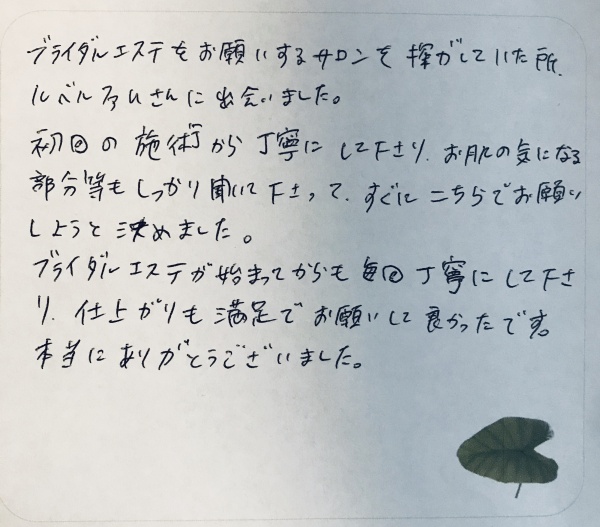 ブライダルエステをお願いするサロンを探がしていた所、
ルベルファムさんに出会いました。
初回の施術から丁寧にして下さり、お肌の気になる
部分等もしっかり聞いて下さって、すぐにこちらでお願い
しようと決めました。
ブライダルエステが始まってからも毎回丁寧にして下さ
り、仕上がりも満足でお願いして良かったです。
本当にありがとうございました。